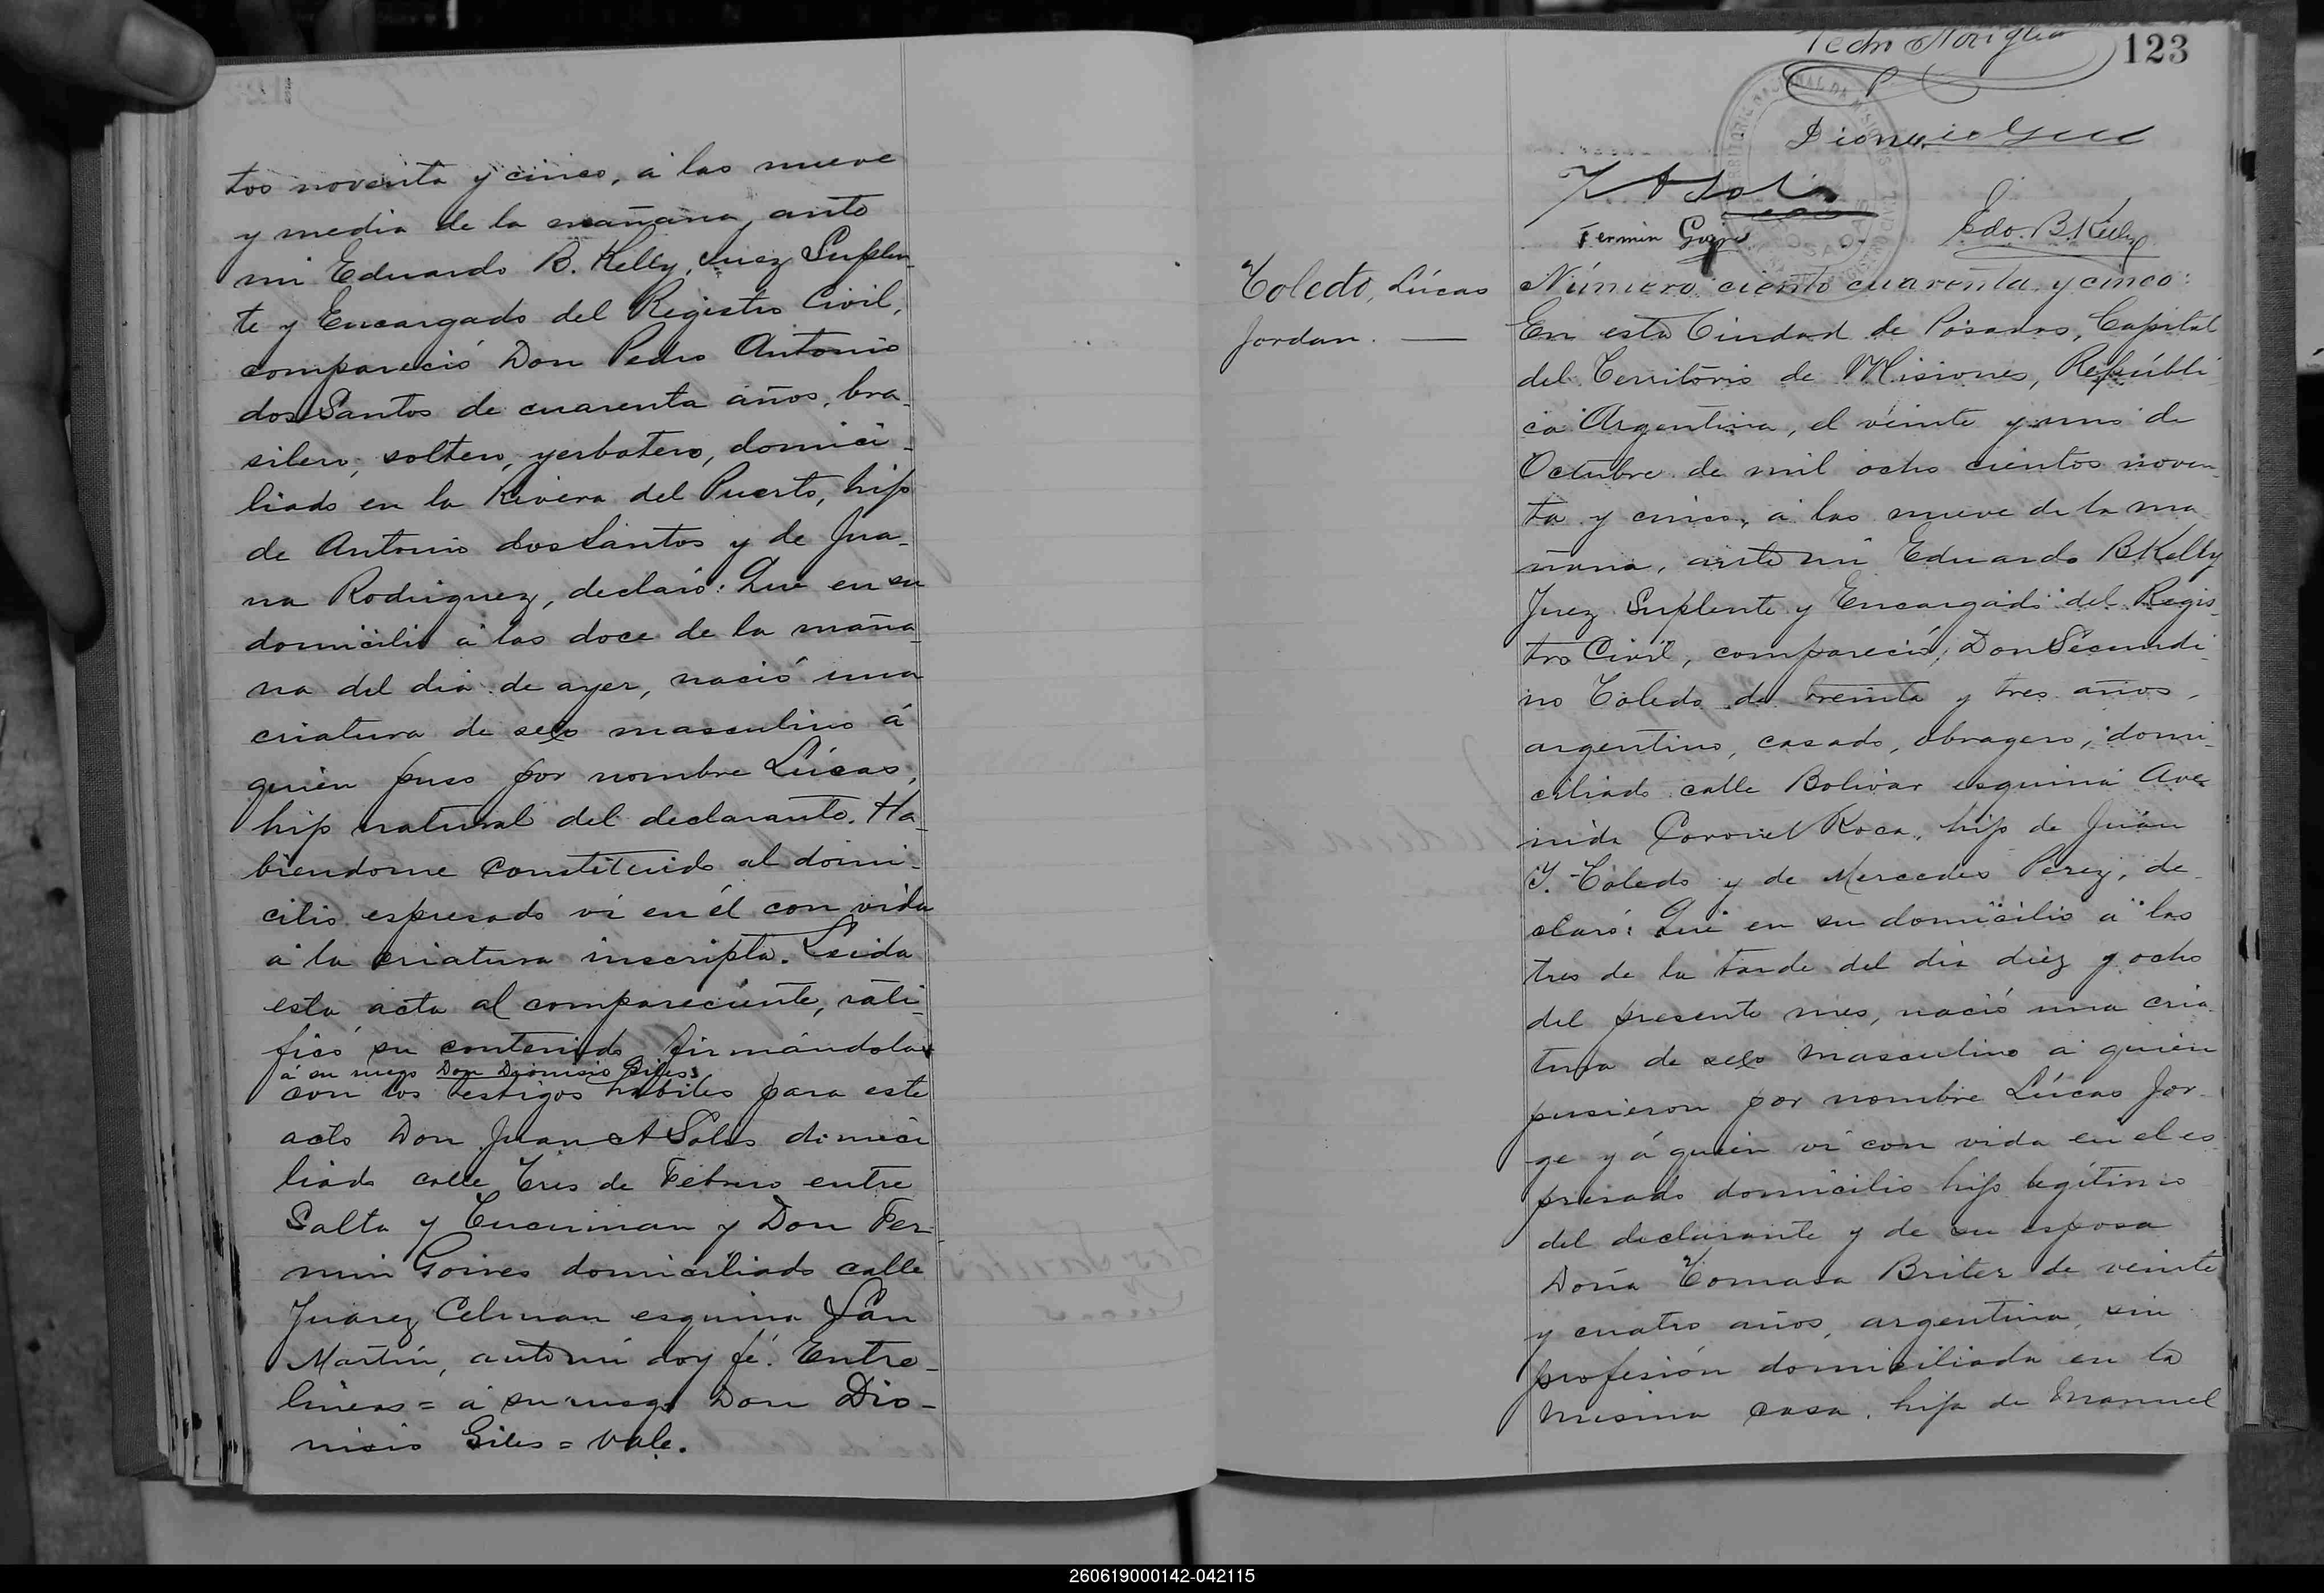 tos noventa y cinco, á las nueve
y media de la mañana, ante
mi Eduardo B. Kelly, Juez Suplen-
te y Encargado del Registro Civil,
compareció Don Pedro Antonio
dos Santos de cuarenta años, bra-
silero, soltero, yerbatero, domici-
liado en la Rivera del Puerto, hijo
de Antonio dos Santos y de Jua-
na Rodriguez, declaró: Que en su
domicilio á las doce de la maña-
na del dia de ayer, nació una
criatura de sexo masculino á
quien puso por nombre Lúcas,
hijo natural del declarante. Ha-
biendome constituido al domi-
cilio espresado vi en él con vida
á la criatura inscripta. Leida
esta acta al compareciente, rati-
ficó su contenido firmándola
á su ruego Don Dionisio Giles
con los testigos habiles para este
acto Don Juan A Solis domici
liado calle Tres de Febrero entre
Salta y Tucuman y Don Fer-
min Goires domiciliado calle
Juarez Celman esquina San
Martin, ante mi doy fé. Entre-
lineas = á su ruego Don Dio-
nisio Giles = Vale.
123
Pedro
Dionisio
J A Solis
Fermin
Edo. B. Kelly
Toledo, Lúcas
Jordan.
Número ciento cuarenta y cinco:
En esta Ciudad de Posadas, Capital
del Territorio de Misiones, Repúbli
ca Argentina, el veinte y uno de
Octubre de mil ocho cientos noven-
ta y cinco, á las nueve de la ma
ñana, ante mi Eduardo B Kelly
Juez Suplente y Encargado del Regis-
tro Civil, compareció, Don Secundi-
no Toledo de treinta y tres años,
argentino, casado, obragero, domi-
ciliado calle Bolivar esquina Ave
nida Coronel Roca, hijo de Juan
Y. Toledo y de Mercedes Perez, de-
claró: Que en su domicilio á las
tres de la tarde del dia diez y ocho
del presente mes, nació una cria
tura de sexo masculino á quien
pusieron por nombre Lúcas Jor-
ge y á quien vi con vida en el es
presado domicilio hijo legitimo
del declarante y de su esposa
Doña Tomasa Briter de veinte
y cuatro años, argentina, sin
profesión domiciliada en la
misma casa, hija de Manuel
260619000142-042115